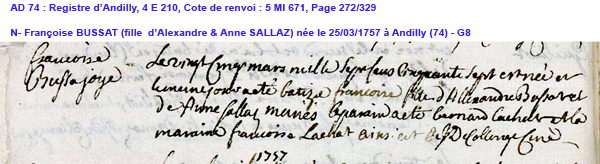 AD 74 : Registre d'Andilly, 4 E 210, Cote de renvoi : 5 MI 671, Page 272/329
N- Françoise BUSSAT (fille d'Alexandre & Anne SALLAZ) née le 25/03/1757 à Andilly (74) - G8
francoise
Le vingt cinq mars mille sept cens cinquante sept est née et
a été batisé francoise fille d'Allexandre Bussat et
de Anne Sallaz mariés le parain a eté bernard Lachat et la
maraine francoise Lachat ainsi est Curé
1757